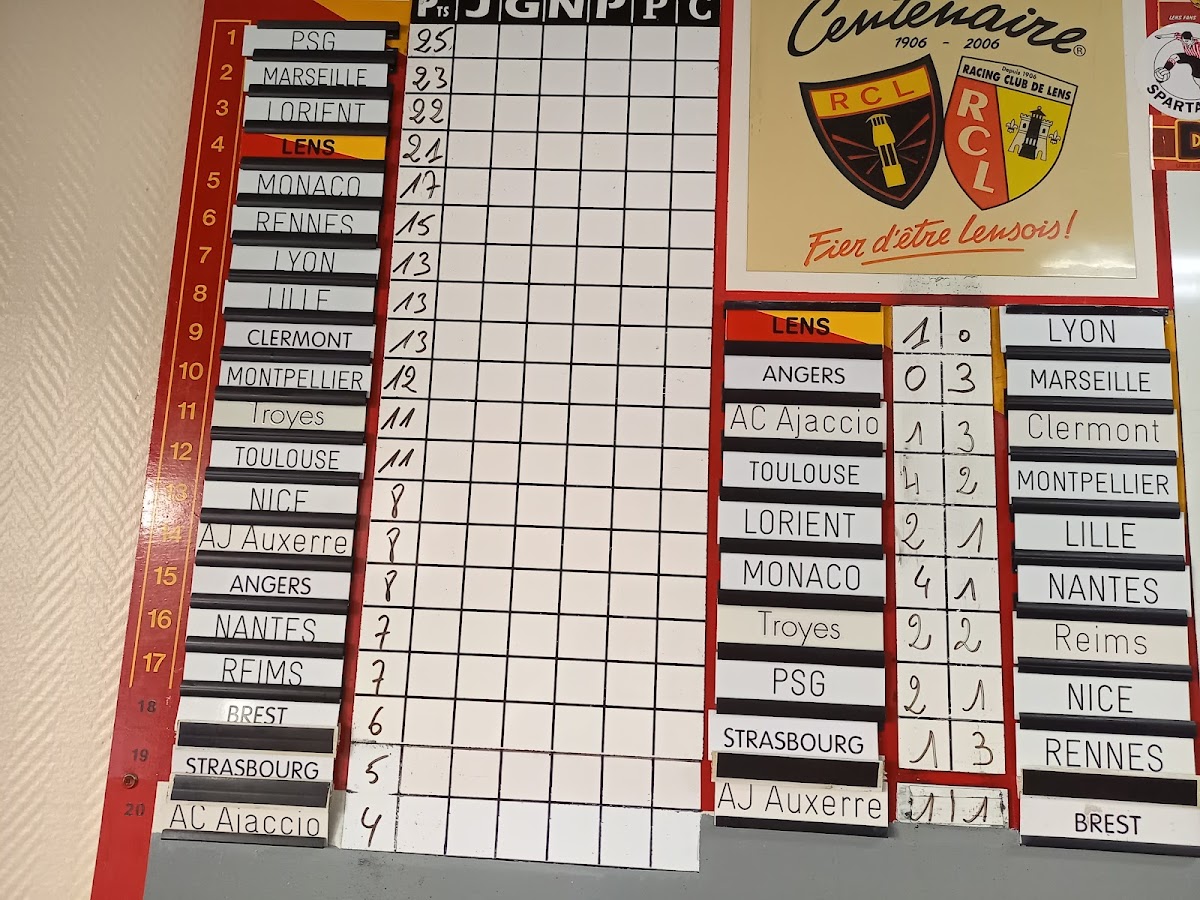 PTS J G N P P C
1 PSG 25
2 MARSEILLE 23
3 LORIENT 22
4 LENS 21
5 MONACO 17
6 RENNES 15
7 LYON 13
8 LILLE 13
9 CLERMONT 13
10 MONTPELLIER 12
11 Troyes 11
12 TOULOUSE 11
13 NICE 8
14 AJ Auxerre 8
15 ANGERS 8
16 NANTES 7
17 REIMS 7
18 BREST 6
19 STRASBOURG 5
20 AC Ajaccio 4
Centenaire
1906 - 2006
RCL
Depuis 1906
RACING CLUB DE LENS
RCL
Fier d'être Lensois!
LENS FANS
SPARTA
D
LENS 1 0 LYON
ANGERS 0 3 MARSEILLE
AC Ajaccio 1 3 Clermont
TOULOUSE 4 2 MONTPELLIER
LORIENT 2 1 LILLE
MONACO 4 1 NANTES
Troyes 2 2 Reims
PSG 2 1 NICE
STRASBOURG 1 3 RENNES
AJ Auxerre 1 1 BREST